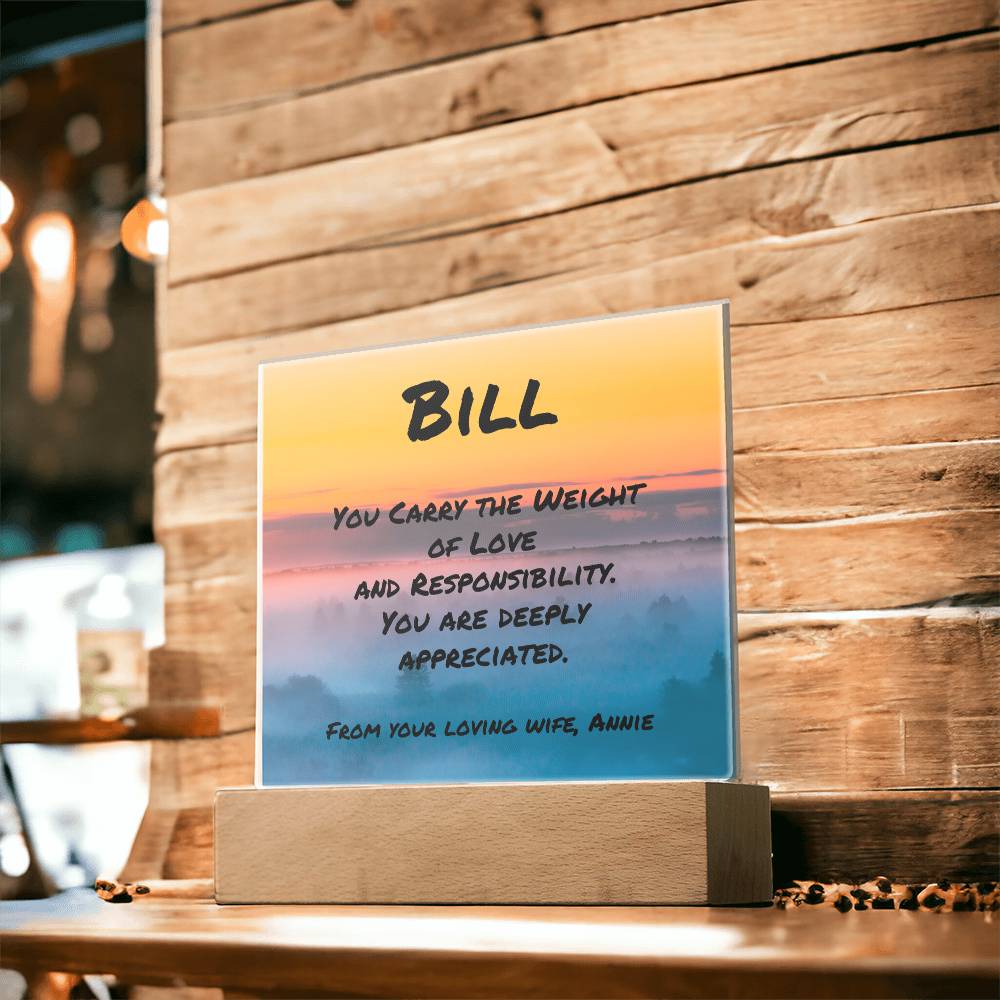 Bill
You Carry the Weight
of Love
and Responsibility.
You are deeply
appreciated.
From your loving wife, Annie